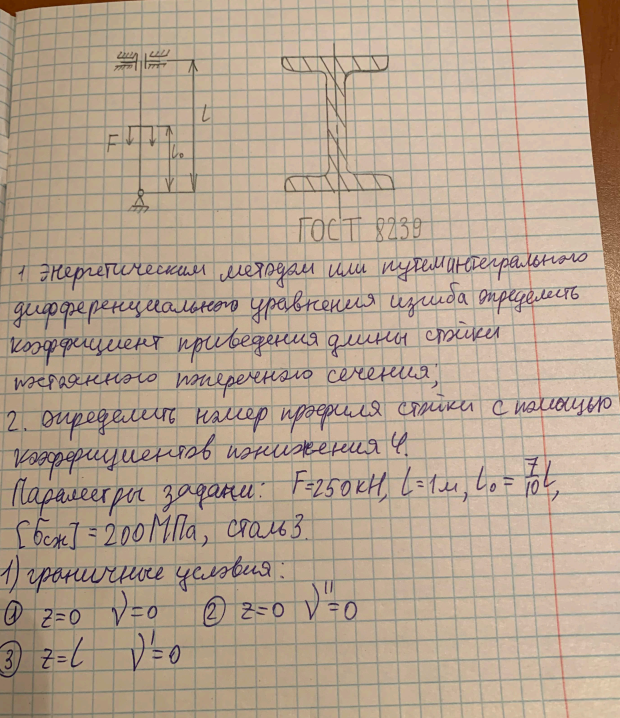 F
l₀
l
ГОСТ 8239
1 Энергетическим методом или путем интегрального
дифференциального уравнения изгиба определить
коэффициент приведения длины стойки
постоянного поперечного сечения;
2. Определить номер профиля стойки с помощью
коэффициентов понижения φ.
Параметры задани: F=250кН, l=1м, l₀=7/10 l,
[σсж]=200МПа, сталь3.
1) граничные условия:
① z=0 V=0 ② z=0 V''=0
③ z=l V'=0